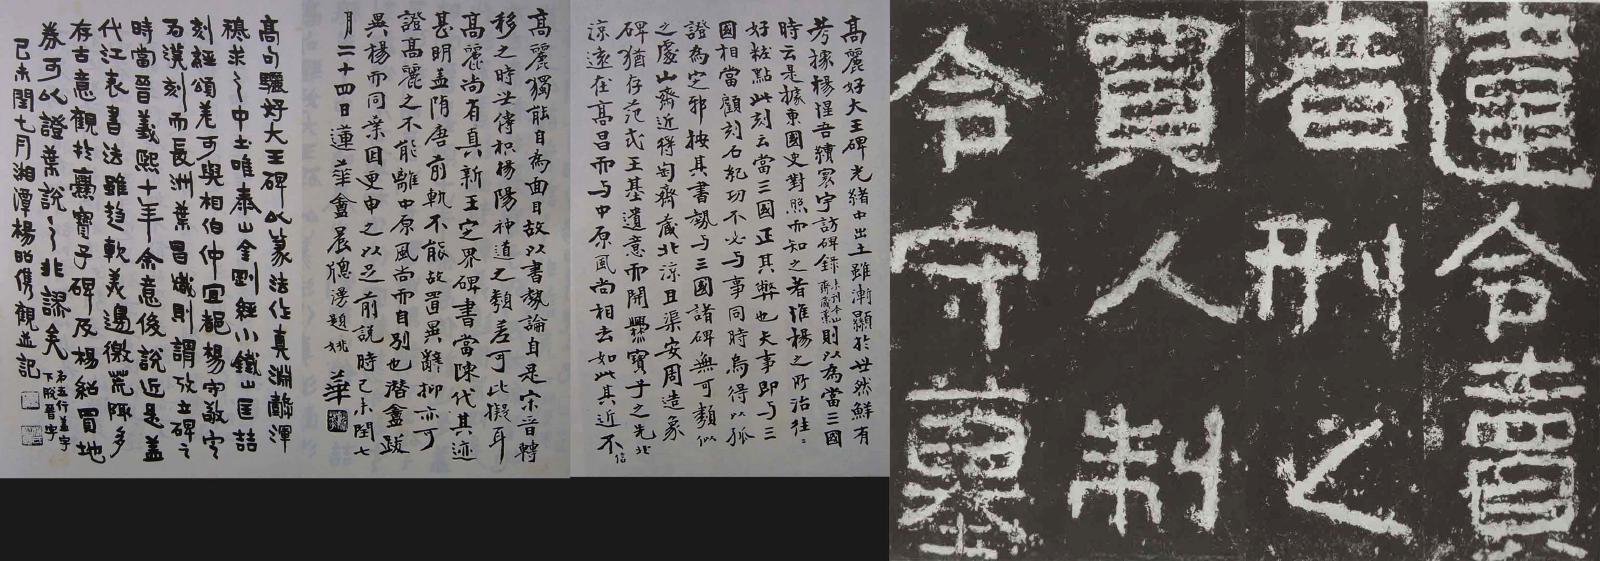 違令賣
者刑之
買人制
令守墓
高麗好大王碑光緒中出土雖漸顯於世然鮮有
考據楊惺吾續寰宇訪碑錄則以為當三國
時云是據東國史對照而知之者惟楊之所治往々
好粧點此刻云當三國正其弊也夫事即与三
國相當顧刻石紀功不必与事同時烏得以孤
證為定邪按其書勢与三國諸碑無可類似
之處山齋近得匋齋藏北涼且渠安周造象
碑猶存范式王基遺意而開爨寶子之先北
涼遠在高昌而与中原風尚相去如此其近不信
高麗獨能自為面目故以書勢論自是宋晉轉
移之時世傳枳楊陽神道之類差可比擬耳
高麗尚有真新王定界碑書當陳代其迹
甚明蓋隋唐前軌不能故置異辭抑亦可
證高麗之不能離中原風尚而自別也潛盦跋
異楊而同葉因更申之以足前說時己未閏七
月二十四日蓮華盦晨牕漫題姚華
高句驪好大王碑以篆法作真淵靜渾
穆求之中土唯泰山金剛經小鐵山匡喆
刻經頌差可與相伯仲宜都楊守敬字
為漢刻而長洲葉昌熾則謂攷立碑之
時當晉義熙十年余意後說近是蓋
代江表書法雖趨軟美邊徼荒陬多
存古意觀於爨寶子碑及楊紹買地
券可以證葉說之非謬矣
弟五行蓋字
下脫晉字
己未閏七月湘潭楊昭儁觀並記